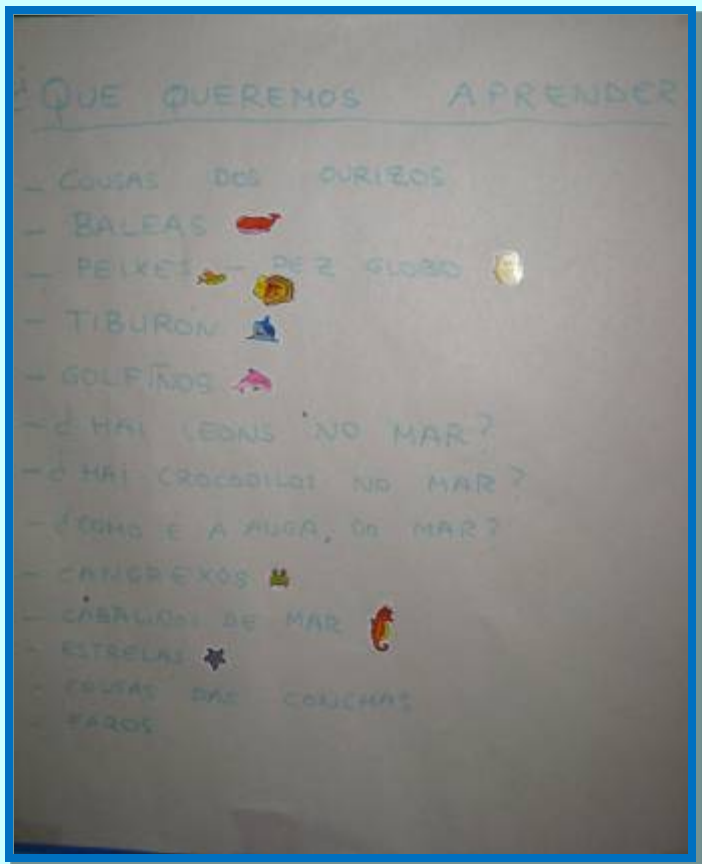 ¿QUE QUEREMOS APRENDER
- COUSAS DOS OURIZOS
- BALEAS
- PEIXES - PEZ GLOBO
- TIBURÓN
- GOLFIÑOS
- ¿HAI LEONS NO MAR?
- ¿HAI CROCODILOS NO MAR?
- ¿COMO E A AUGA, DO MAR?
- CANGREXOS
- CABALIÑOS DE MAR
- ESTRELAS
- COUSAS DAS CONCHAS
- FAROS